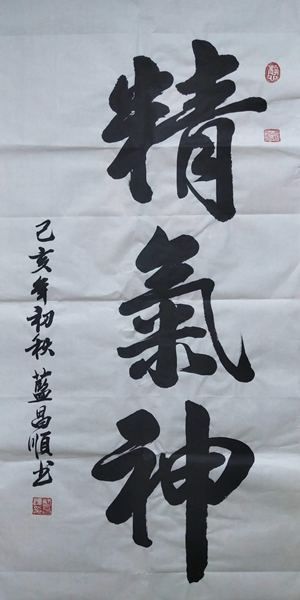 精氣神
己亥年初秋藍昌順书